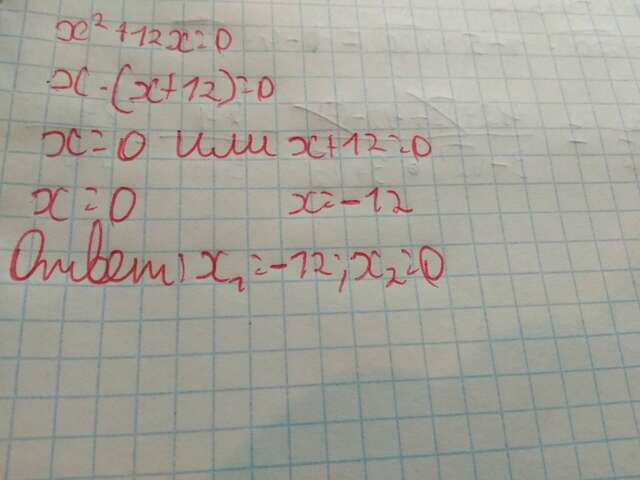 x² + 12x = 0
x · (x + 12) = 0
x = 0 или x + 12 = 0
x = 0 x = -12
Ответ: x₁ = -12; x₂ = 0